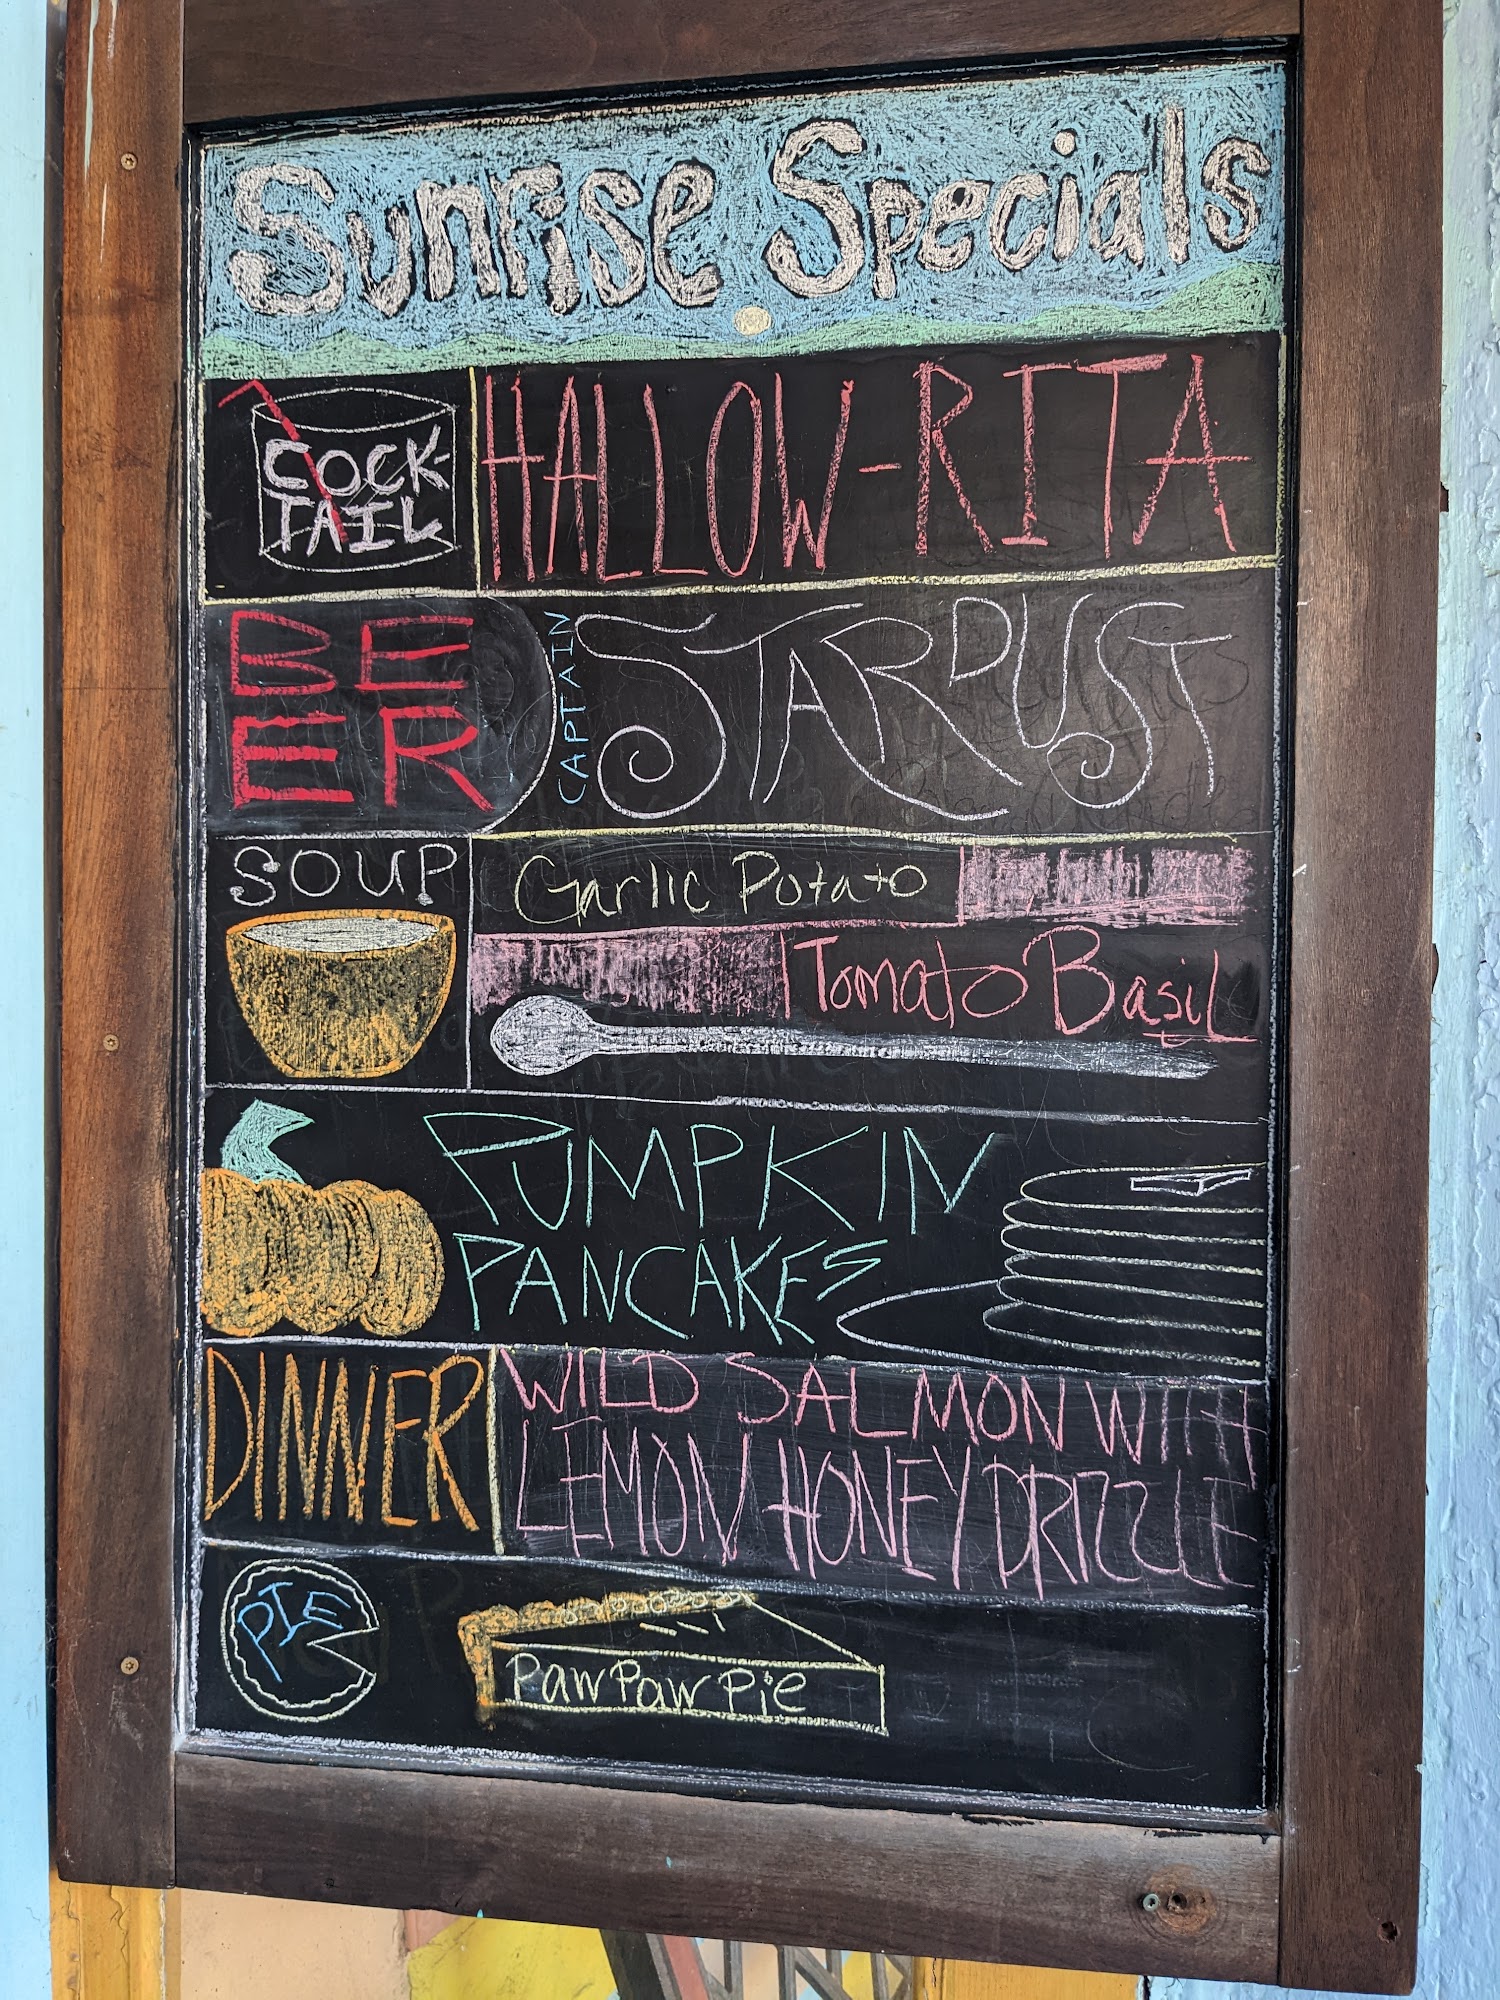 Sunrise Specials
COCK-
TAIL
HALLOW-RITA
BE
ER
CAPTAIN
STARDUST
SOUP
Garlic Potato
Tomato Basil
PUMPKIN
PANCAKES
DINNER
WILD SALMON WITH
LEMON HONEY DRIZZLE
PIE
PawPaw Pie